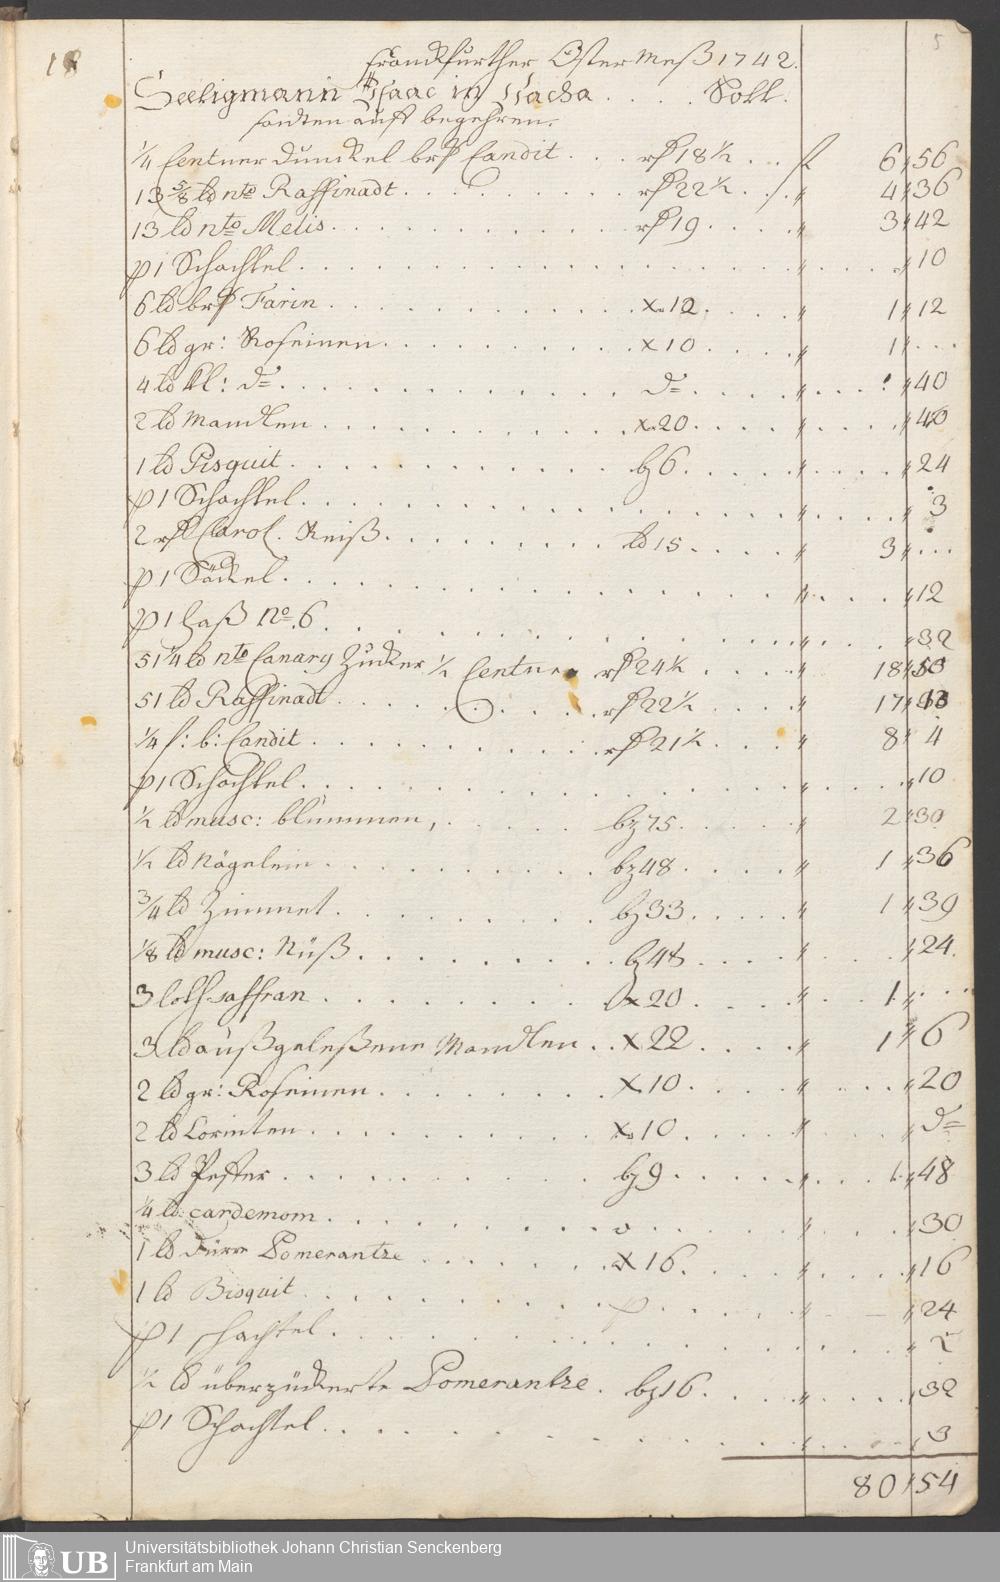 18
5
Franckfurther Oster Meß 1742.
Seeligmann Isaac in Vacha . . . . Soll.
sandten auff begehren.
1/4 Centner dunckel brß Candit . . . rß 18 1/2 . . . f 6 " 56
13 5/8 lb nto Raffinadt . . . rß 22 1/2 . . . " 4 " 36
13 lb nto Melis . . . rß 19 . . . " 3 " 42
p 1 Schachtel . . . " 10
6 lb brß Farin . . . x 12 . . . " 1 " 12
6 lb gr: Roseinen . . . x 10 . . . " 1 " . . .
4 lb kl: do . . . do . . . " 40
2 lb Mandlen . . . x 20 . . . " 40
1 lb Pisquit . . . bz 6 . . . " 24
p 1 Schachtel . . . " 3
2 rß Carol. Reiß . . . lb 15 . . . " 3 " . . .
p 1 Säckel . . . " 12
p 1 Faß No. 6 . . . " 32
51 1/4 lb nto Canary Zucker 1/2 Centner rß 24 1/2 . . . " 18 " 50
51 lb Raffinadt . . . rß 22 1/2 . . . " 17 "
1/4 f: b: Candit . . . rß 21 1/2 . . . " 8 " 4
p 1 Schachtel . . . " 10
1/2 lb musc: blummen, . . . bz 75 . . . " 2 " 30
1/2 lb Nägelein . . . bz 48 . . . " 1 " 36
3/4 lb Zimmet . . . bz 33 . . . " 1 " 39
1/8 lb musc: Nüß . . . bz 48 . . . " 24
3 loth saffran . . . x 20 . . . " 1 " . . .
3 lb außgeleßene Mandlen . . x 22 . . . " 1 " 6
2 lb gr: Roseinen . . . x 10 . . . " 20
2 lb Corinten . . . x 10 . . . " do
3 lb Peffer . . . bz 9 . . . " 48
1/4 lb cardemom . . . " 30
1 lb Dürre Pomerantze . . . x 16 . . . " 16
1 lb Bisquit . . . " 24
p 1 schachtel . . . " 2
1/2 lb überzückerte Pomerantze . bz 16 . . . " 32
p 1 Schachtel . . . " 3
80 " 54
UB
Universitätsbibliothek Johann Christian Senckenberg
Frankfurt am Main